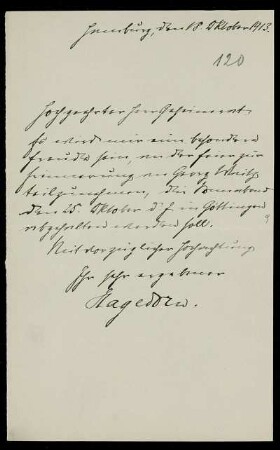 Hamburg, den 18. Oktober 1913.
120
Hochgeehrter Herr Geheimrat,
Es wird mir eine besondere
Freude sein, an der Feier zur
Erinnerung an Georg Waitz
teilzunehmen, die Sonnabend
den 25. Oktober d. J. in Göttingen
abgehalten werden soll.
Mit vorzüglicher Hochachtung
Ihr sehr ergebener
Hagedorn.